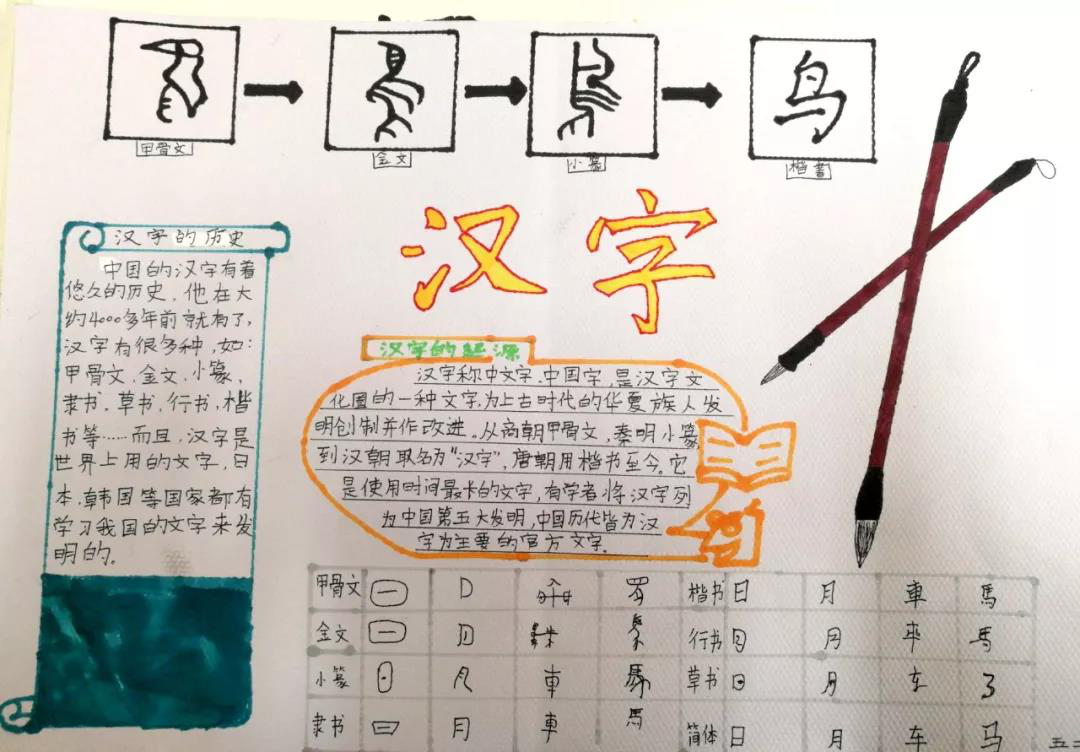 甲骨文
金文
小篆
楷书
汉字
汉字的历史
中国的汉字有着
悠久的历史，他在大
约4000多年前就有了，
汉字有很多种，如：
甲骨文、金文、小篆，
隶书、草书、行书，楷
书等……而且，汉字是
世界上用的文字，日
本、韩国等国家都有
学习我国的文字来发
明的。
汉字的起源
汉字称中文字、中国字，是汉字文
化圈的一种文字，为上古时代的华夏族人发
明创制并作改进。从商朝甲骨文，秦明小篆，
到汉朝取名为“汉字”，唐朝用楷书至今。它
是使用时间最卡的文字，有学者将汉字列
为中国第五大发明，中国历代皆为汉
字为主要的官方文字。
甲骨文 楷书 日 月 車 馬
金文 行书 日 月 車 馬
小篆 草书
隶书 日 月 車 馬 简体 日 月 车 马